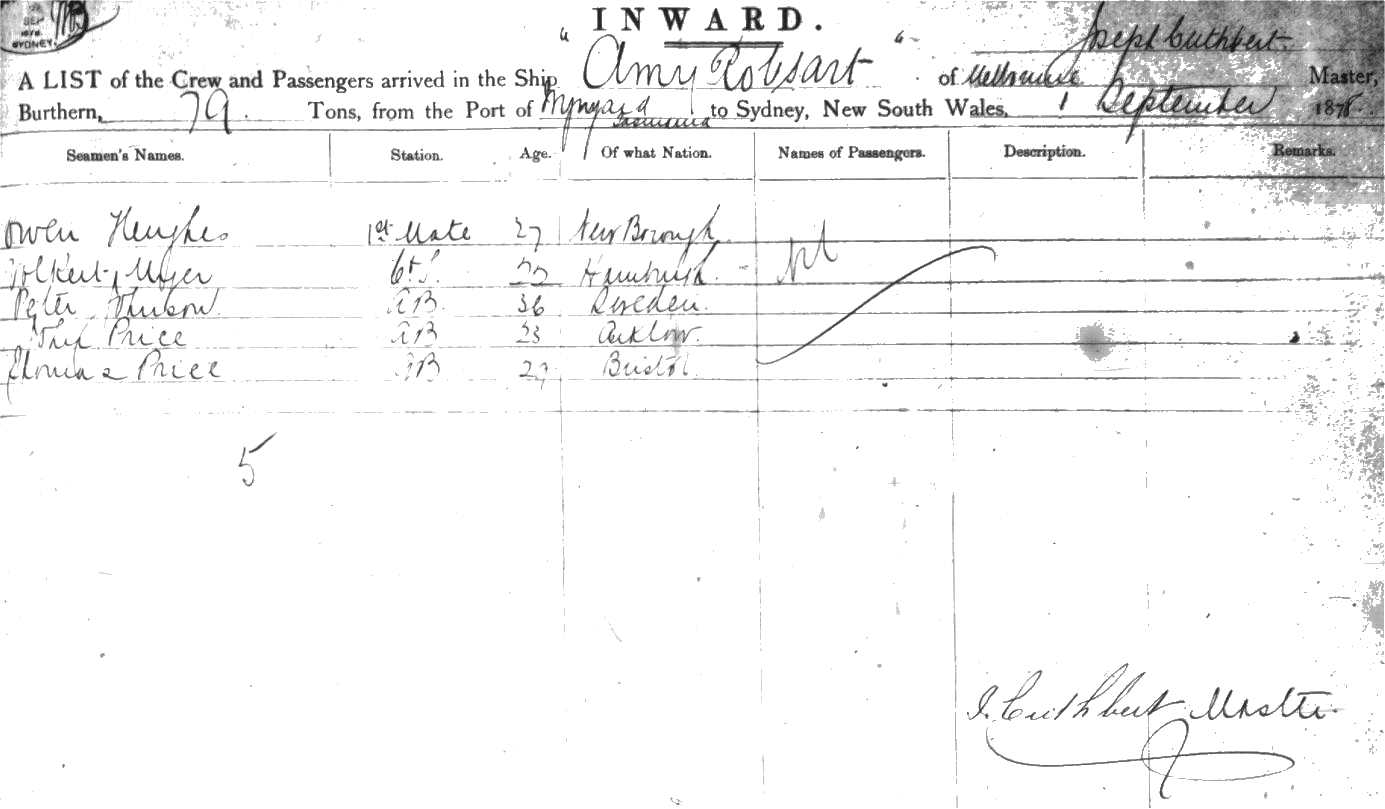 SEP
1878
SYDNEY.
INWARD.
Joseph Cuthbert.
A LIST of the Crew and Passengers arrived in the Ship "Amy Robsart" of Melbourne Master,
Burthern, 79. Tons, from the Port of Wynyard Tasmania to Sydney, New South Wales, 1 September 1878.
Seamen's Names. Station. Age. Of what Nation. Names of Passengers. Description. Remarks.
Owen Hughes 1st Mate 27 New Borough
Myer 22 Hamburgh. Nil
Peter AB. 36 Sweden.
Price AB 23 Arklow.
Thomas Price AB 29 Bristol.
5
J. Cuthbert Master.